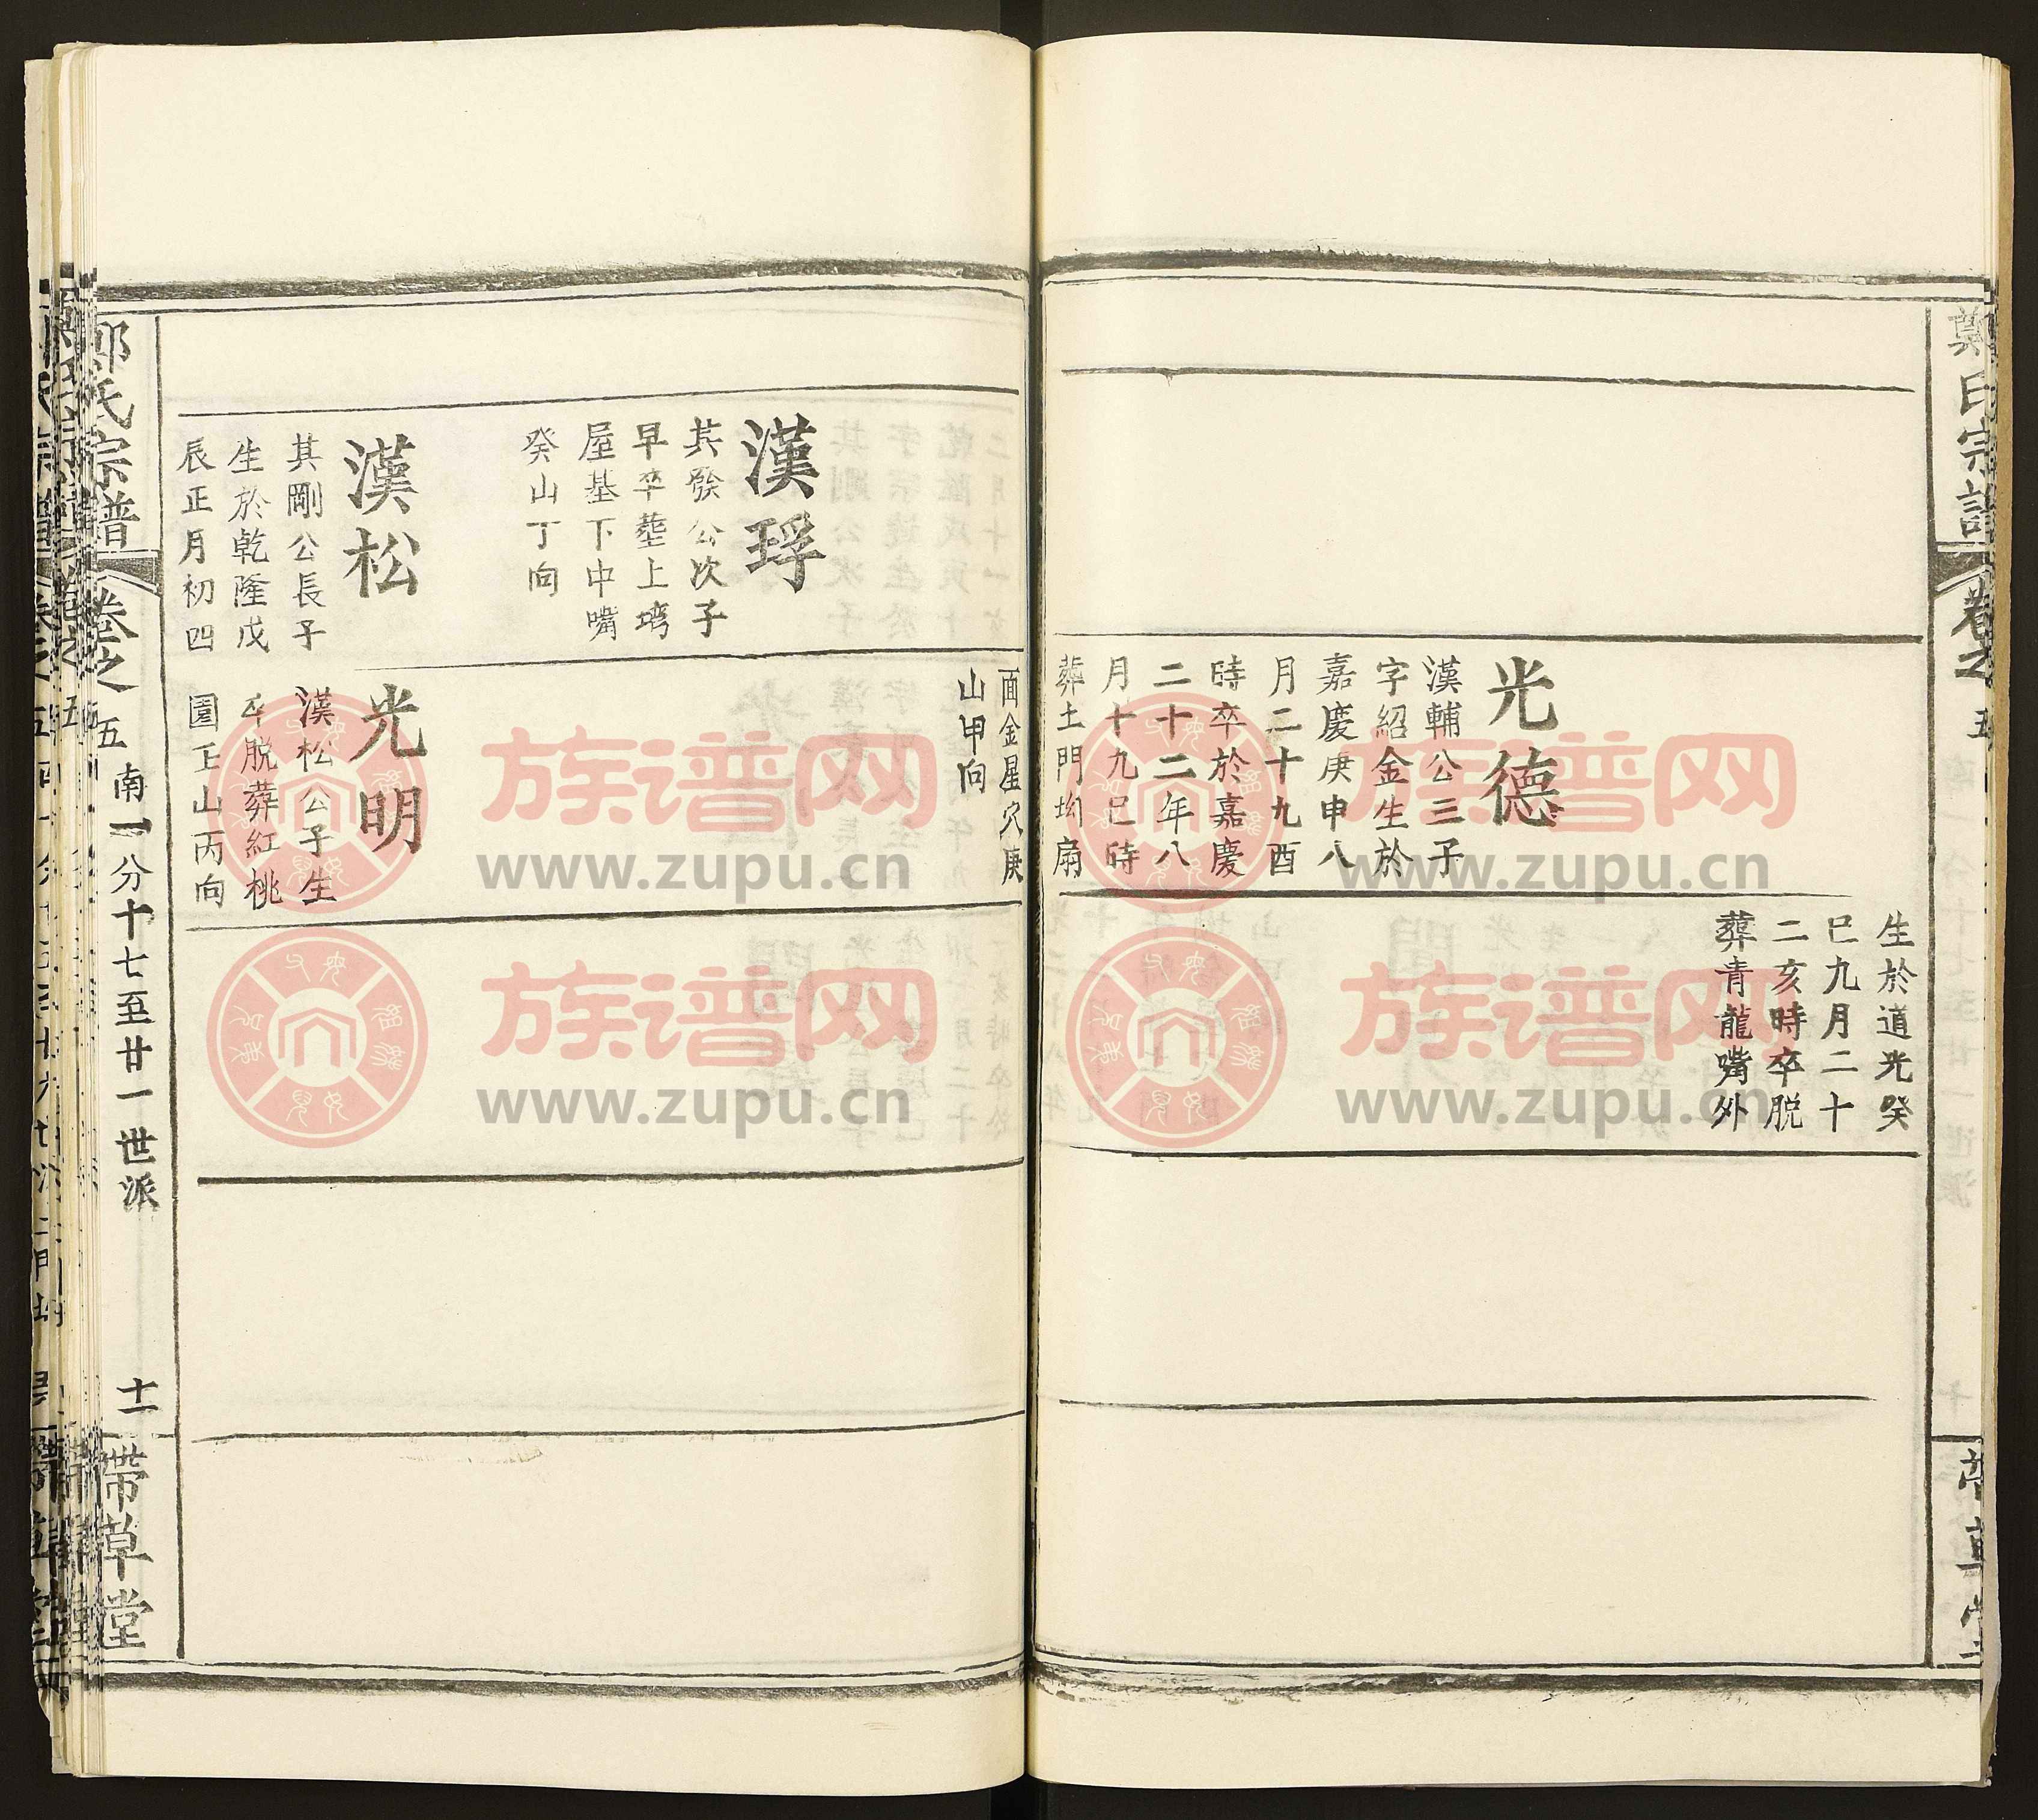 鄭氏宗譜
卷之五
生於道光癸
巳九月二十
二亥時卒脱
葬青龍嘴外
光德
漢輔公三子
字紹金生於
嘉慶庚申八
月二十九酉
時卒於嘉慶
二十二年八
月十九巳時
葬土門坳扇
面金星穴庚
山甲向
漢琈
其發公次子
早卒塟上塆
屋基下中嘴
癸山丁向
漢松
其剛公長子
生於乾隆戊
辰正月初四
光明
漢松公子生
卒脱葬紅桃
園壬山丙向
鄭氏宗譜
卷之五
南一分十七至廿一世派
十一
帶草堂
族谱网
www.zupu.cn
族谱网
www.zupu.cn
族谱网
www.zupu.cn
族谱网
www.zupu.cn